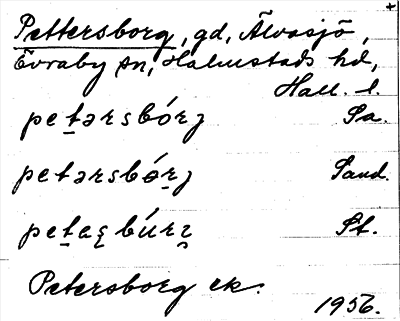 +
Pettersborg, gd, Älvasjö,
Övraby sn, Halmstads hd,
Hall. l.
petərsbórʒ Sa.
petərsbɵ́rʒ Sand.
petaʂbúrʒ St.
Petersborg ek.
1956.